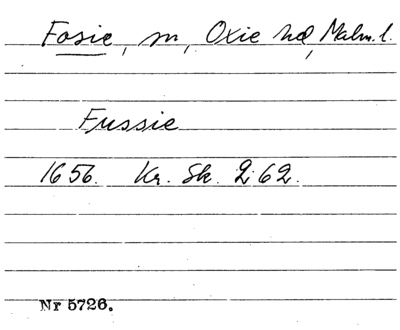 Fosie, sn, Oxie hd, Malm. l.
Fussie
1656. Kr. Sk. 2:62.
Nr 5726.